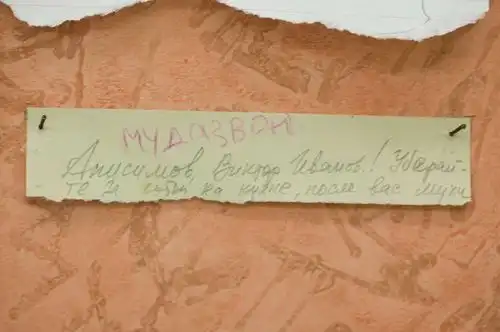 МУДАЗВОН
Анисимов, Виктор Иванов.! Убирай-
те за собой на кухне, после вас мухи